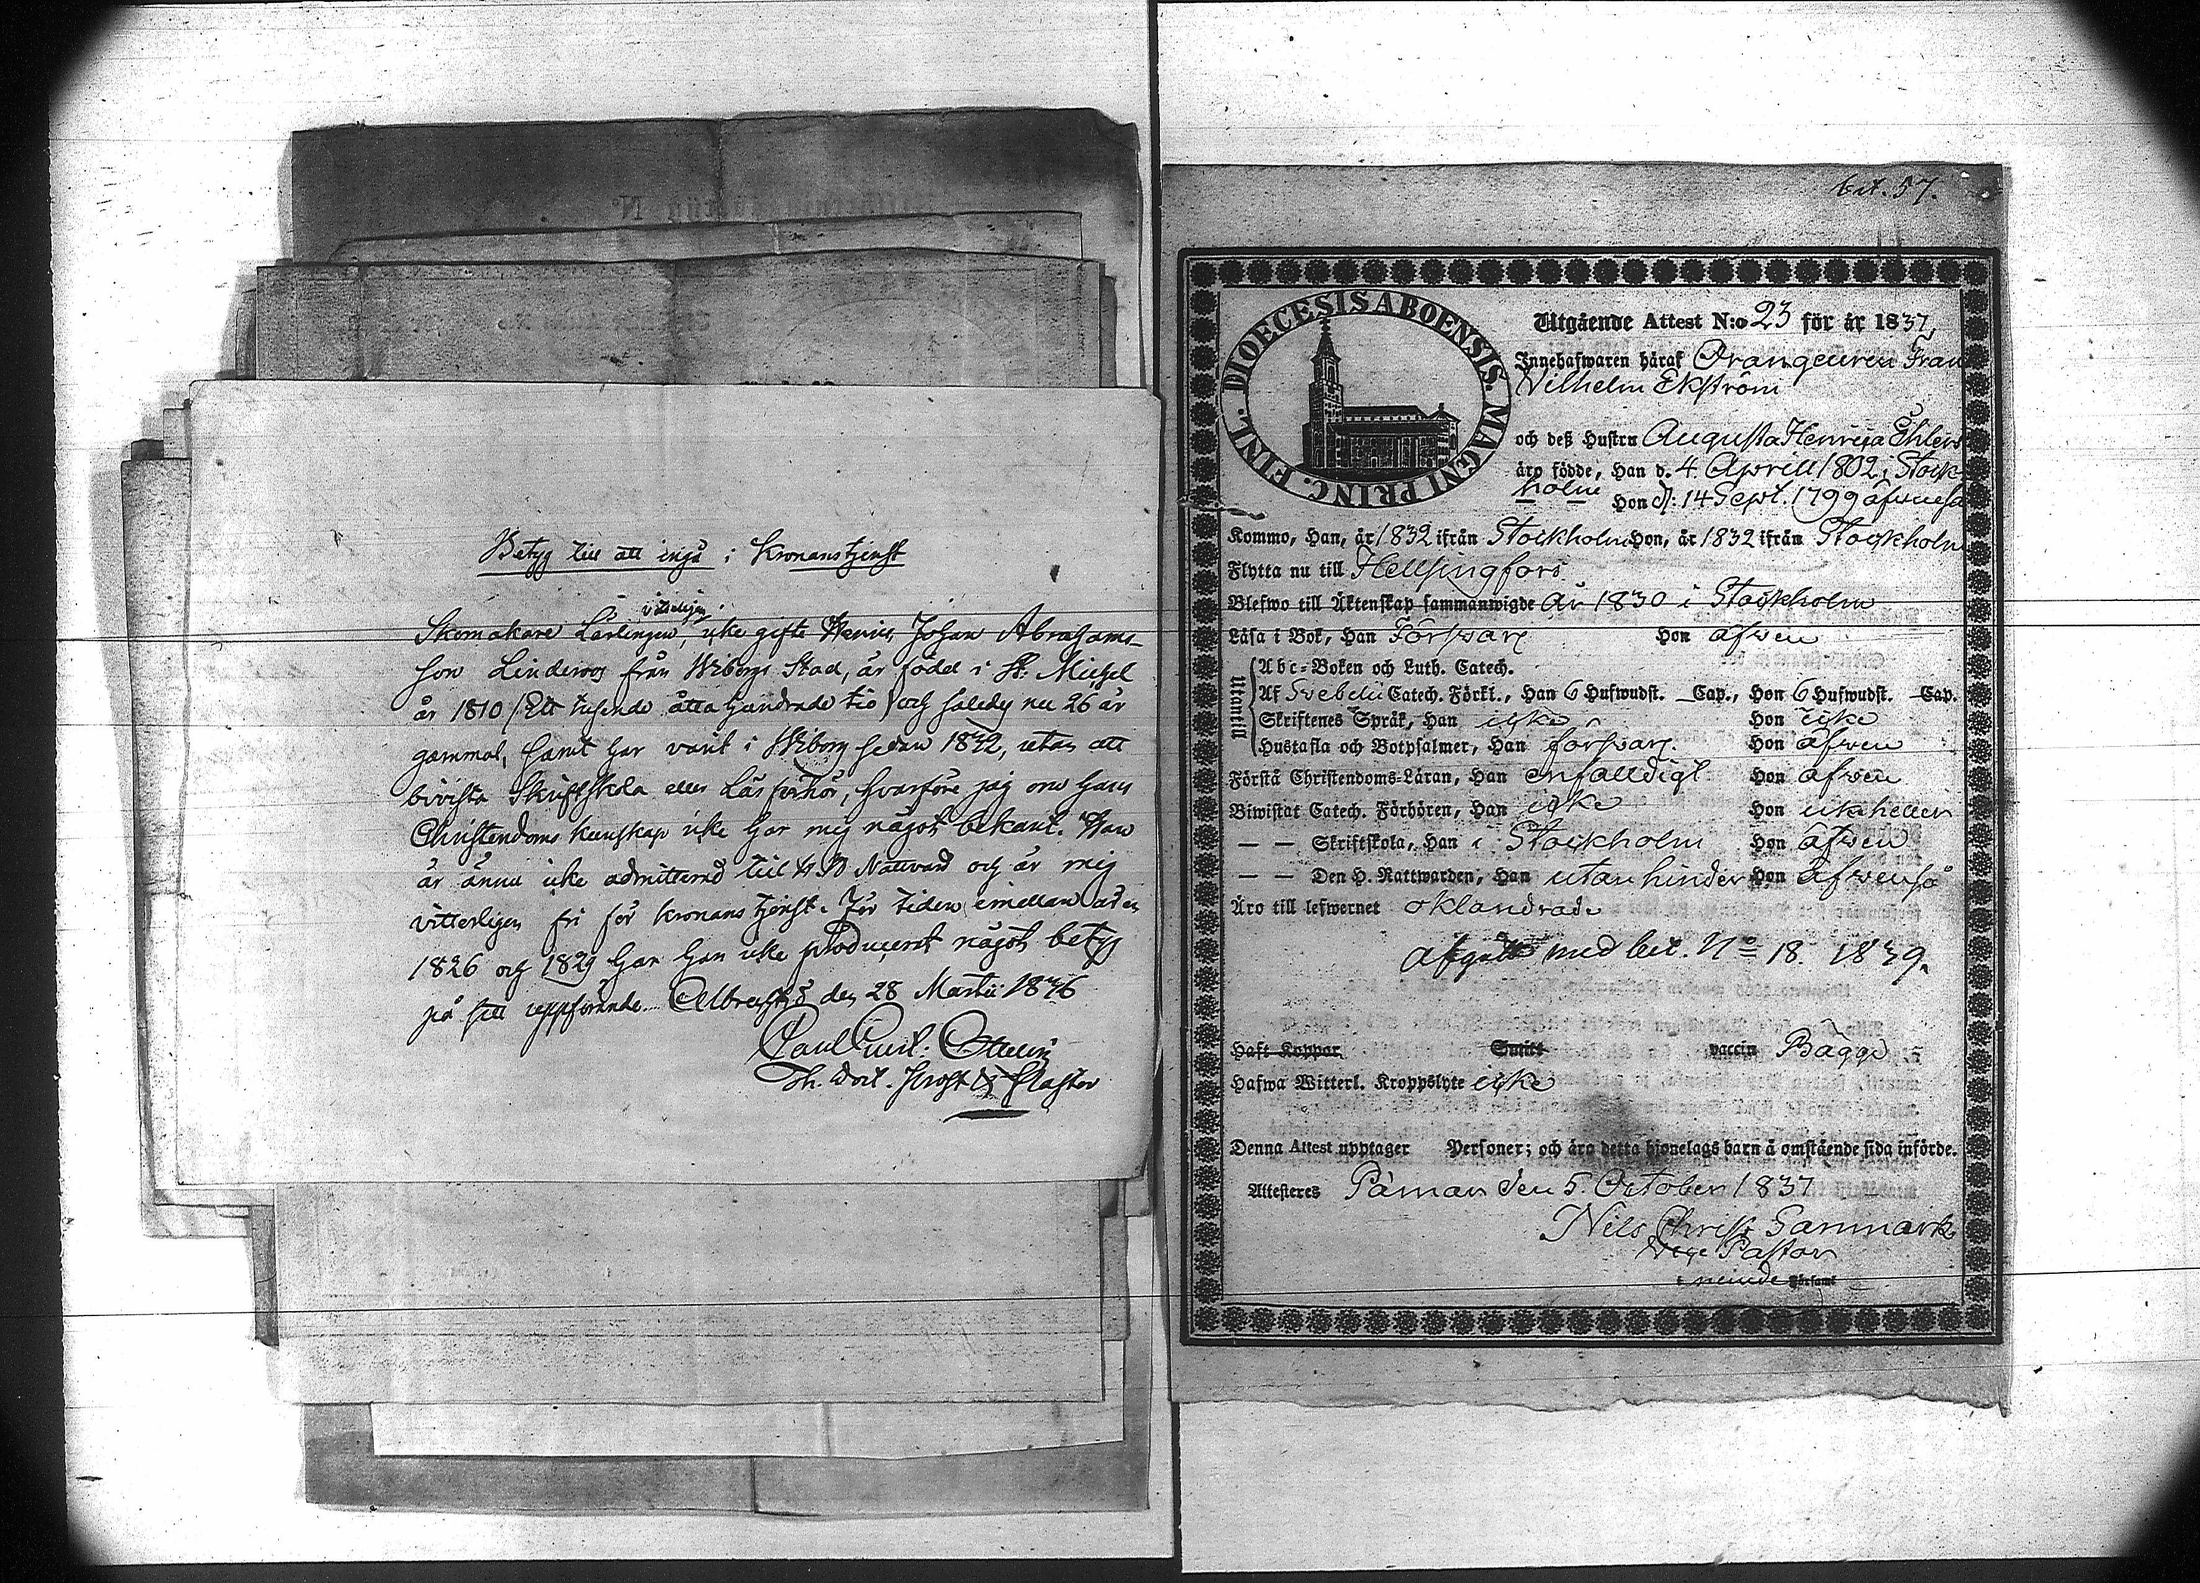 Betyg till att ingå i Kronans tjenst
vitterligen
Skomakare Lärlingen, icke gifte Henric Johan Abrahams-
son Linderoos från Wiborgs Stad, är född i St. Michel
år 1810 /Ett tusende åtta hundrade tio/ och således nu 26 år
gammal, samt har varit i Wiborg sedan 1832, utan att
bivista Skriftskola eller Läsförhör, hvarföre jag om hans
Christendoms kunskap icke har mig något bekant. Han
är ännu icke admitterad till H. H. Nattvard och är mig
vitterligen fri för Kronans tjenst. För tiden emellan åren
1826 och 1829 har han icke producerat något betyg
på sitt uppförande. den 28 Martii 1836
Paul
Pastor
bet. 57.
DIOECESIS ABOENSIS. MAGNI PRINC. FINL.
Utgående Attest N:o 23 för år 1837,
Innehafwaren häraf Orangeuren Fran
Wilhelm Ekström
och deß Hustru Augusta Henrica Ehlers
äro födde, Han d. 4. Aprill 1802 i Stock-
holm Hon d: 14 Sept. 1799 äfwenså
Kommo, Han, år 1832 ifrån Stockholm Hon, år 1832 ifrån Stockholm
Flytta nu till Helsingfors
Blefwo till Äktenskap sammanwigde År 1830 i Stockholm
Läsa i Bok, Han Förswarl Hon äfwen
Utantill
Abc-Boken och Luth. Catech.
Af Svebelii Catech. Förkl., Han 6 Hufwudst. _ Cap., Hon 6 Hufwudst. _ Cap.
Skriftenes Språk, Han icke Hon icke
Hustafla och Botpsalmer, Han förswarl. Hon äfwen
Förstå Christendoms-Läran, Han enfalldigt Hon äfwen
Biwistat Catech. Förhören, Han icke Hon icke heller
— — Skriftskola, Han i Stockholm Hon äfwen
— — Den H. Nattwarden, Han utan hinder Hon äfwenså
Äro till lefwernet oklandrade
afgått med bet. No 18. 1839.
Haft Koppor Smitt vaccin Bägge
Hafwa Witterl. Kroppslyte icke
Denna Attest upptager Personer; och äro detta hjonelags barn å omstående sida införde.
Attesteras Pämar den 5. October 1837
Nils Christ Sammark
Vice Pastor
Församl